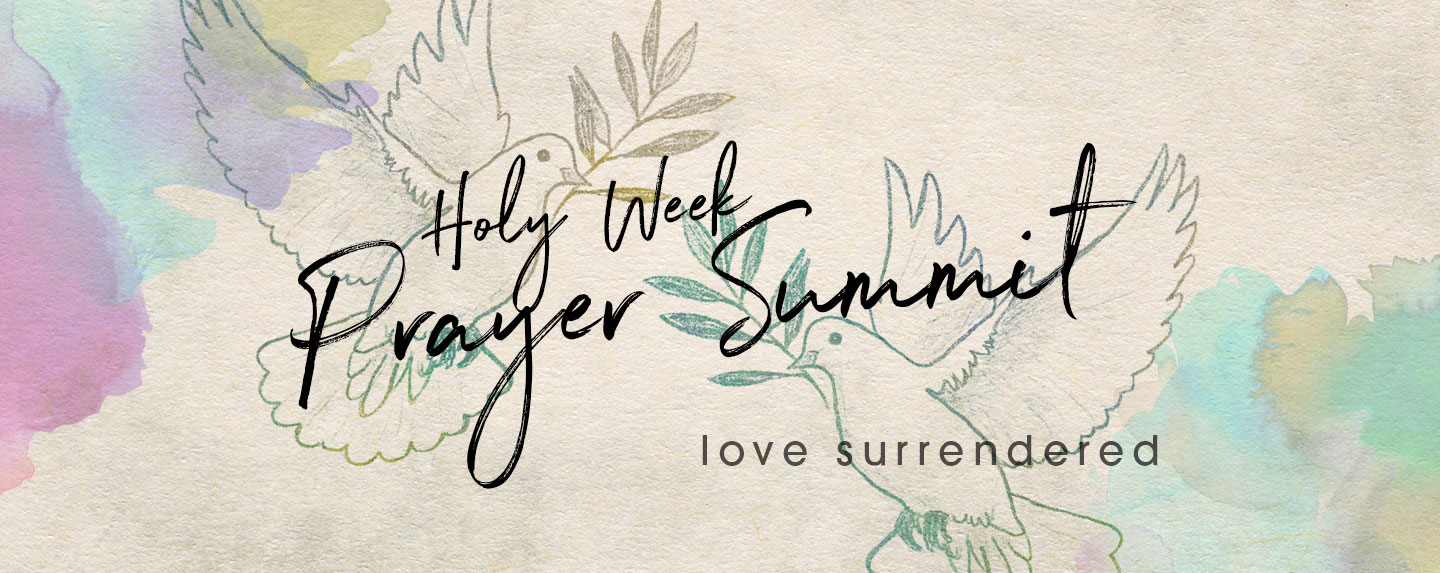 Holy Week
Prayer Summit
love surrendered